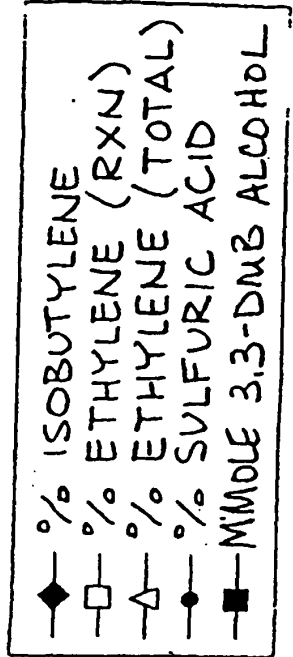 % ISOBUTYLENE
% ETHYLENE (RXN)
% ETHYLENE (TOTAL)
% SULFURIC ACID
M'MOLE 3,3-DMB ALCOHOL